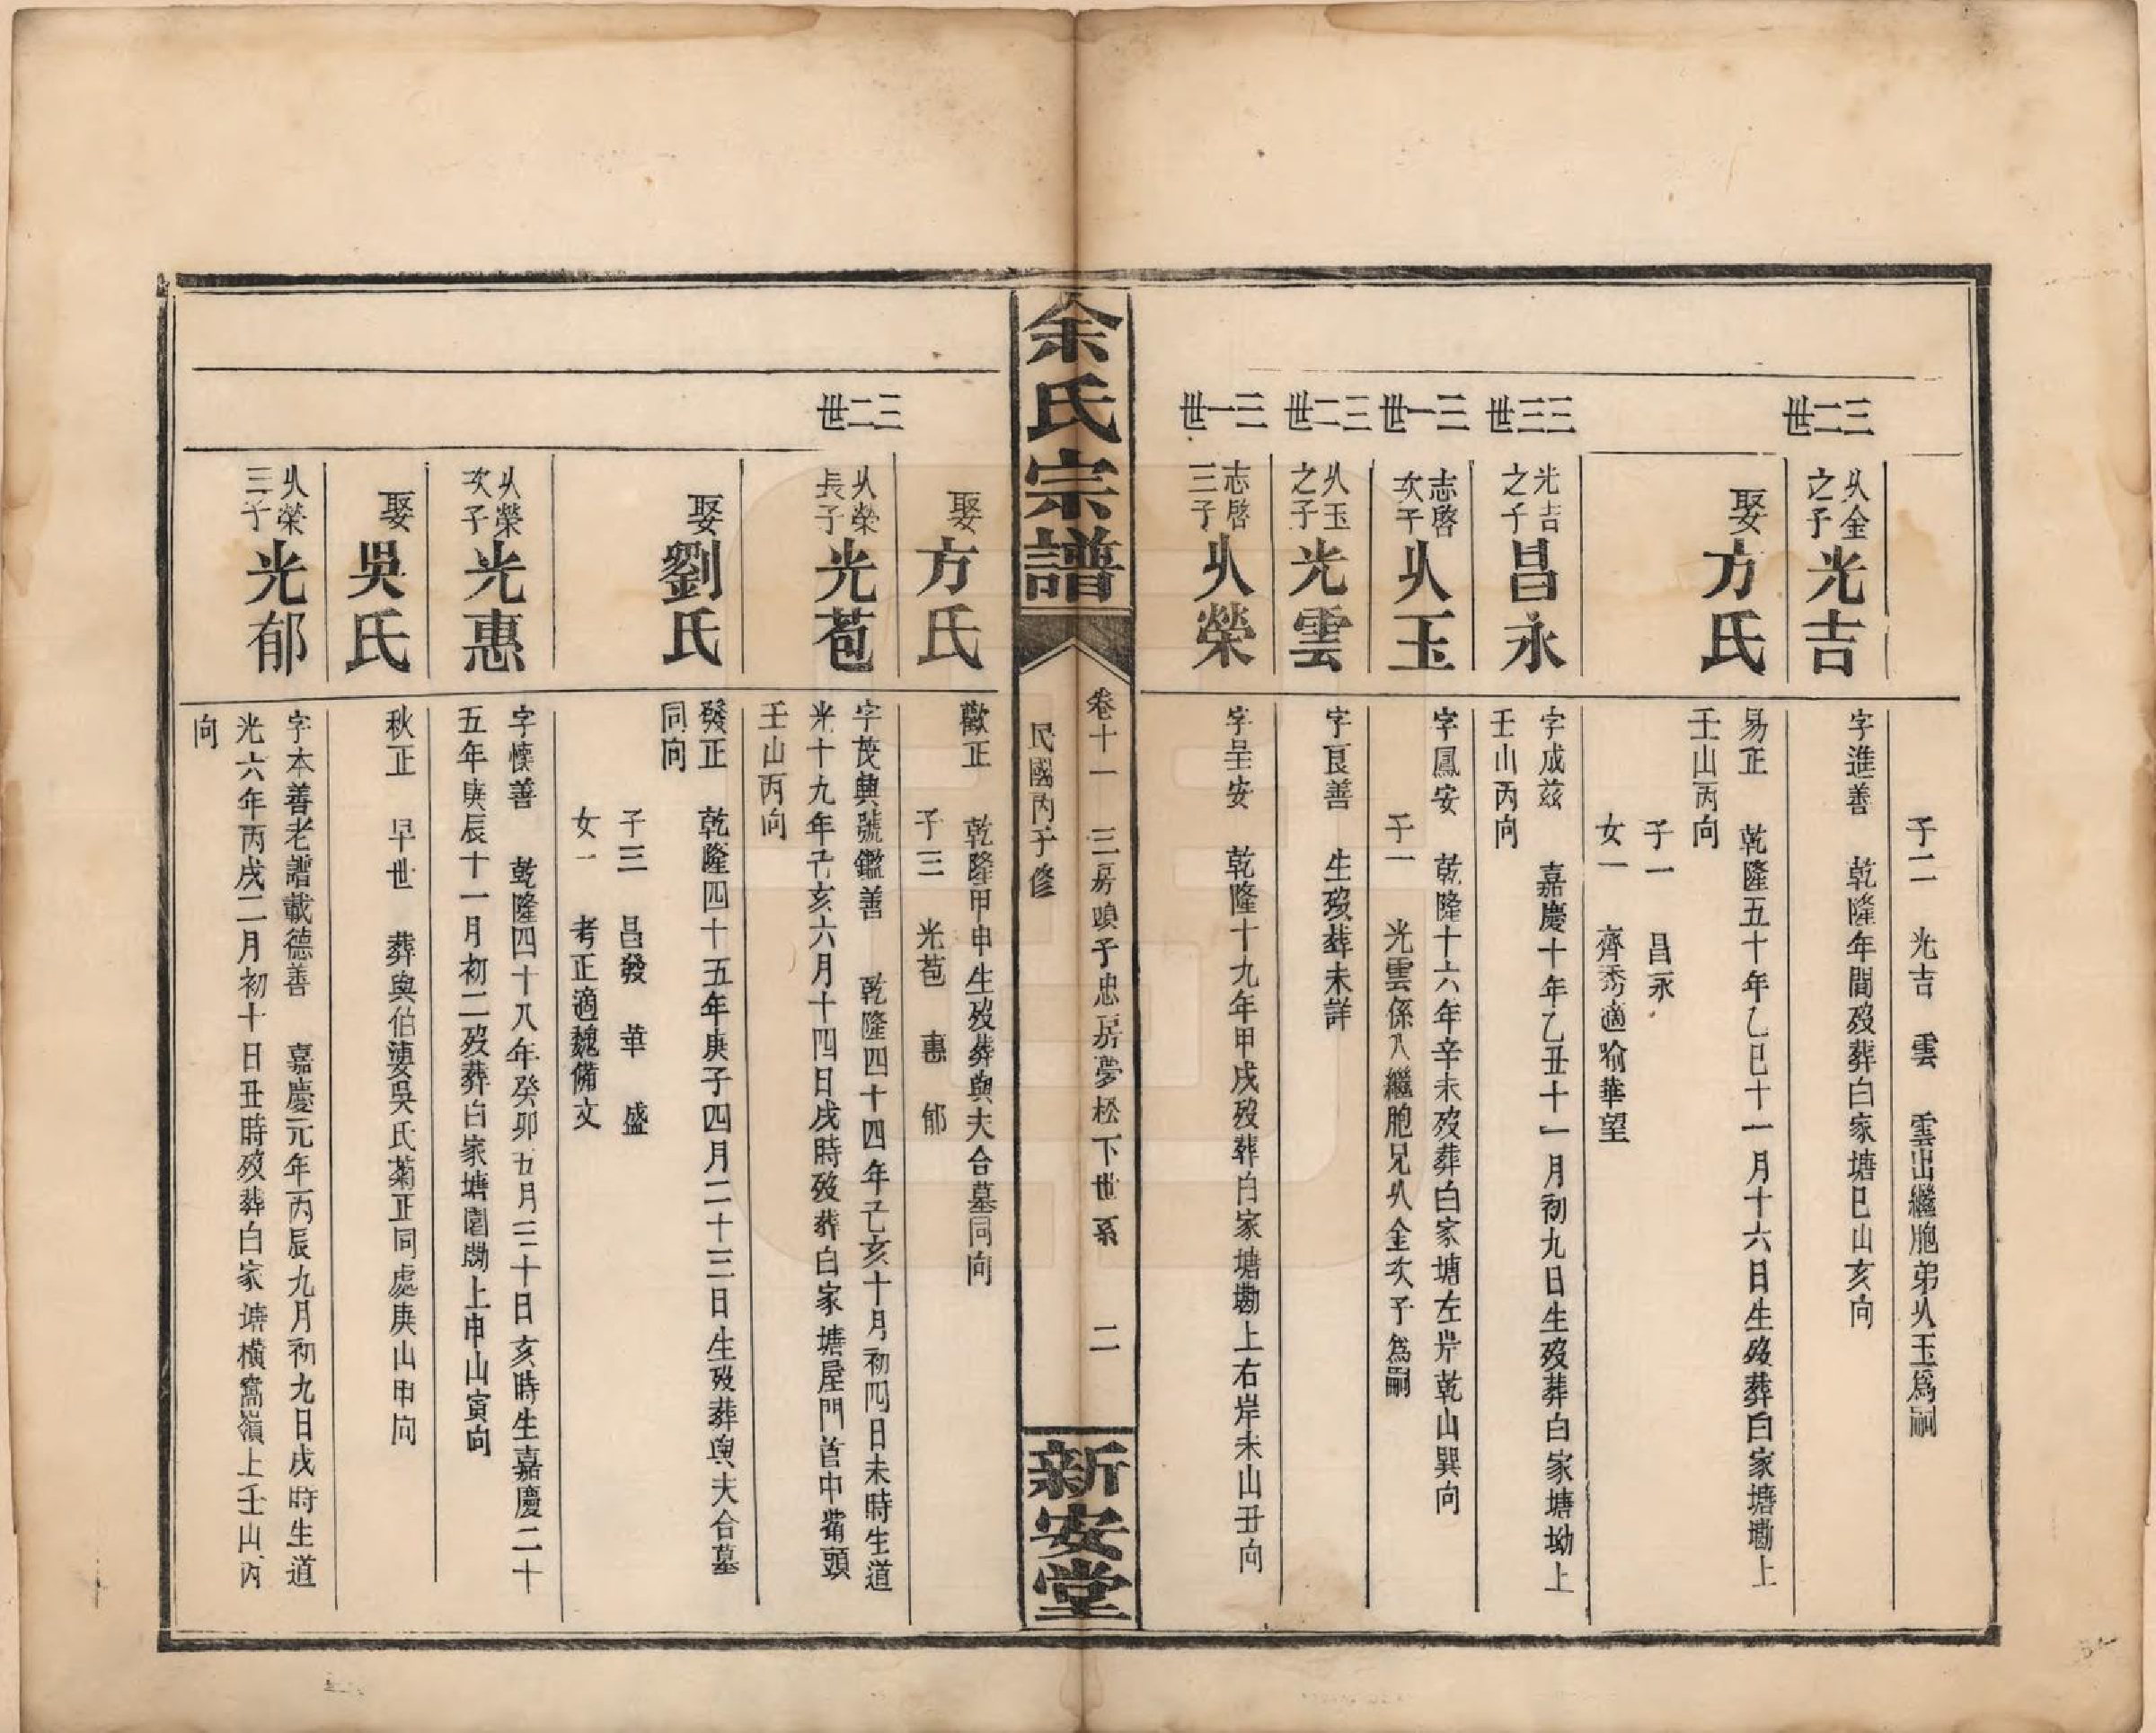 子二　光吉　雲　雲出繼胞弟㸦玉爲嗣
三二世
㸦金之子光吉
字進善　乾隆年間歿葬白家塘巳山亥向
娶方氏
易正　乾隆五十年乙巳十一月十六日生歿葬白家塘墈上
壬山丙向
子一　昌永
女一　齊秀適喻華望
三三世
光吉之子昌永
字成茲　嘉慶十年乙丑十一月初九日生歿葬白家塘坳上
壬山丙向
三一世
志啓次子㸦玉
字鳳安　乾隆十六年辛未歿葬白家塘左岸乾山巽向
子一　光雲係入繼胞兄㸦金次子爲嗣
三二世
㸦玉之子光雲
字良善　生歿葬未詳
三一世
志啓三子㸦榮
字呈安　乾隆十九年甲戌歿葬白家塘墈上右岸未山丑向
余氏宗譜
卷十一　三房頭子忠房夢松下世系　二
民國丙子修
新安堂
娶方氏
歡正　乾隆甲申生歿葬與夫合墓同向
子三　光苞　惠　郁
三二世
㸦榮長子光苞
字茂興號鑑善　乾隆四十四年己亥十月初四日未時生道
光十九年己亥六月十四日戌時歿葬白家塘屋門首中嘴頭
壬山丙向
娶劉氏
發正　乾隆四十五年庚子四月二十三日生歿葬與夫合墓
同向
子三　昌發　華　盛
女一　考正適魏備文
㸦榮次子光惠
字懷善　乾隆四十八年癸卯五月三十日亥時生嘉慶二十
五年庚辰十一月初二歿葬白家塘園墈上申山寅向
娶吳氏
秋正　早世　葬與伯婆吳氏菊正同處庚山甲向
㸦榮三子光郁
字本善老譜載德善　嘉慶元年丙辰九月初九日戌時生道
光六年丙戌二月初十日丑時歿葬白家塘橫窩嶺上壬山丙
向